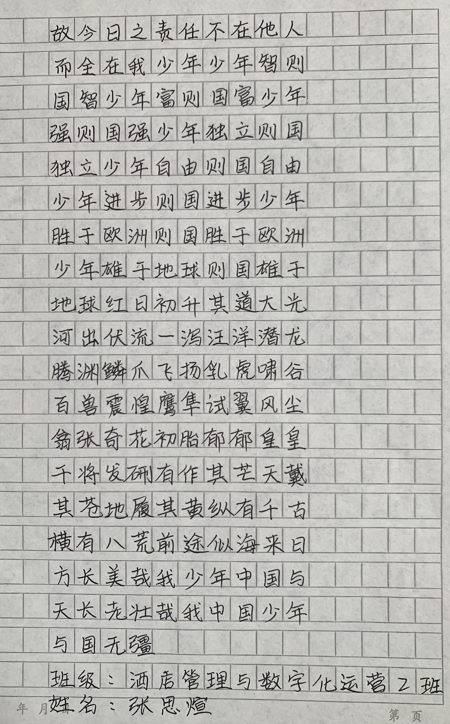 故今日之责任不在他人
而全在我少年少年智则
国智少年富则国富少年
强则国强少年独立则国
独立少年自由则国自由
少年进步则国进步少年
胜于欧洲则国胜于欧洲
少年雄于地球则国雄于
地球红日初升其道大光
河出伏流一泻汪洋潜龙
腾渊鳞爪飞扬乳虎啸谷
百兽震惶鹰隼试翼风尘
翕张奇花初胎矞矞皇皇
干将发硎有作其芒天戴
其苍地履其黄纵有千古
横有八荒前途似海来日
方长美哉我少年中国与
天长老壮哉我中国少年
与国无疆
班级：酒店管理与数字化运营2班
姓名：张思煊
年 月
第 页